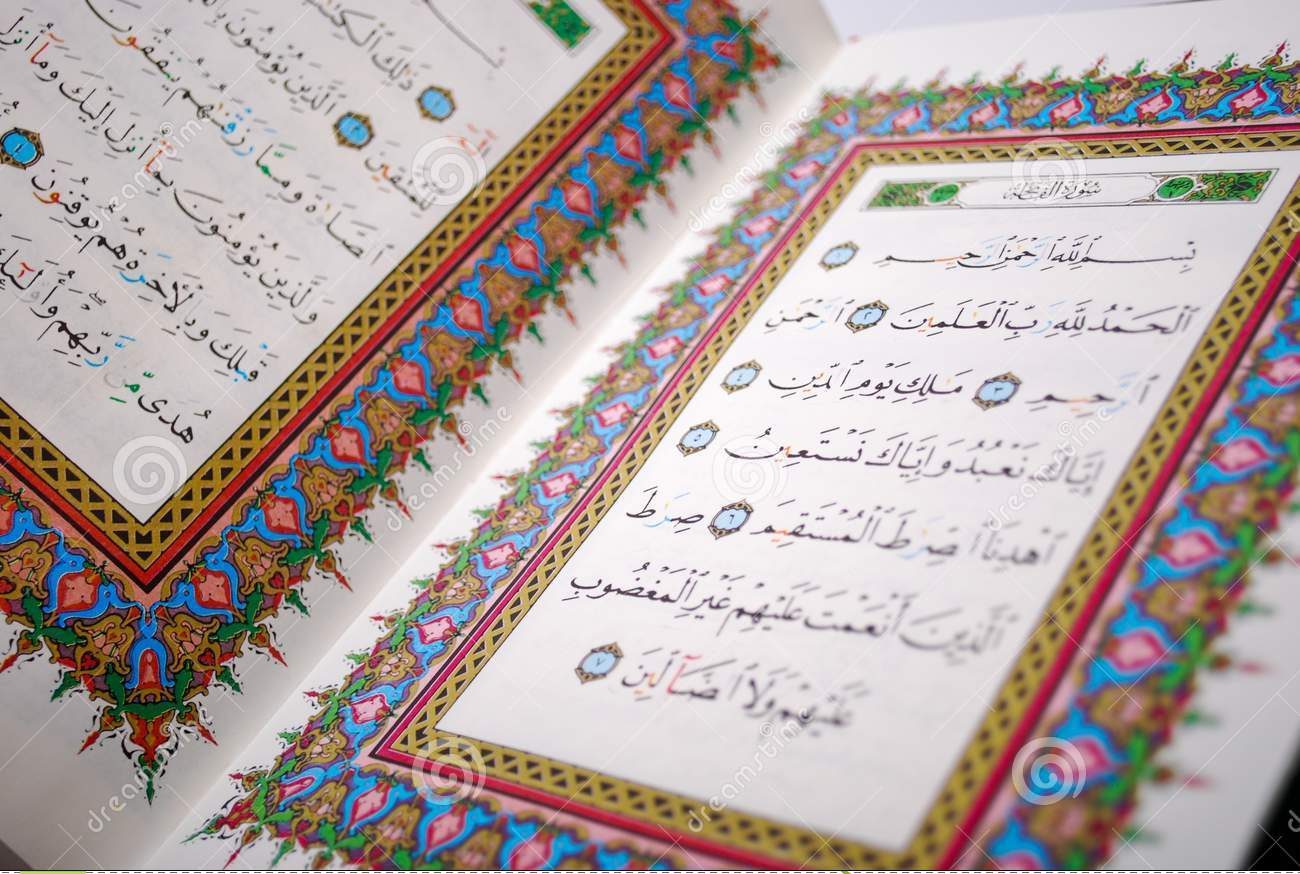 سُورَةُ الفَاتِحَة
بِسْمِ ٱللَّهِ ٱلرَّحْمَٰنِ ٱلرَّحِيمِ ١
ٱلْحَمْدُ لِلَّهِ رَبِّ ٱلْعَٰلَمِينَ ٢ ٱلرَّحْمَٰنِ
ٱلرَّحِيمِ ٣ مَٰلِكِ يَوْمِ ٱلدِّينِ ٤
إِيَّاكَ نَعْبُدُ وَإِيَّاكَ نَسْتَعِينُ ٥
ٱهْدِنَا ٱلصِّرَٰطَ ٱلْمُسْتَقِيمَ ٦ صِرَٰطَ
ٱلَّذِينَ أَنْعَمْتَ عَلَيْهِمْ غَيْرِ ٱلْمَغْضُوبِ
عَلَيْهِمْ وَلَا ٱلضَّآلِّينَ ٧
الٓمٓ ١ ذَٰلِكَ
لِلْمُتَّقِينَ ٢ ٱلَّذِينَ يُؤْمِنُونَ
ٱلصَّلَوٰةَ وَمِمَّا رَزَقْنَٰهُمْ يُنفِقُونَ
وَٱلَّذِينَ يُؤْمِنُونَ بِمَآ أُنزِلَ إِلَيْكَ وَمَآ أُنزِلَ
قَبْلِكَ وَبِٱلْأٓخِرَةِ هُمْ يُوقِنُونَ ٤
هُدًى مِّن رَّبِّهِمْ وَأُو۟لَٰٓئِكَ
dreamstime